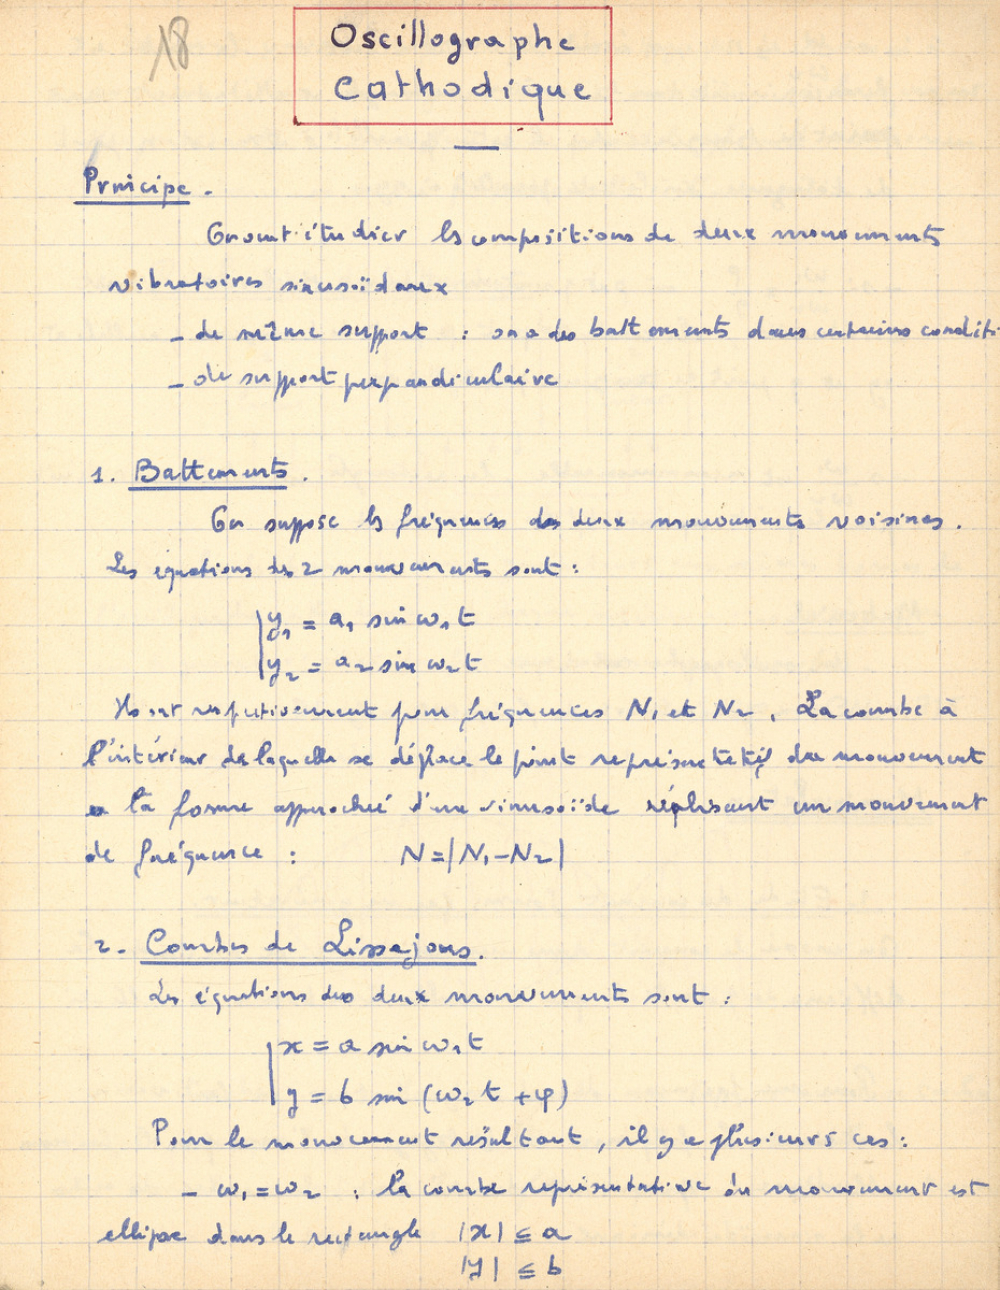 18
Oscillographe
Cathodique
Principe.
On veut étudier les compositions de deux mouvements
vibratoires sinusoïdaux
- de même support : on a des battements dans certains conditi
- de support perpendiculaire
1. Battements.
On suppose les fréquences des deux mouvements voisines.
Les équations des 2 mouvements sont :
y₁ = a₁ sin ω₁t
y₂ = a₂ sin ω₂t
Ils ont respectivement pour fréquences N₁ et N₂. La courbe à
l'intérieur de laquelle se déplace le point représentatif du mouvement
a la forme approchée d'une sinusoïde réalisant un mouvement
de fréquence : N=|N₁-N₂|
2. Courbes de Lissajous.
Les équations des deux mouvements sont :
x = a sin ω₁t
y = b sin (ω₂t + φ)
Pour le mouvement résultant, il y a plusieurs cas :
- ω₁=ω₂ : la courbe représentative du mouvement est
ellipse dans le rectangle |x| ≤ a
|y| ≤ b